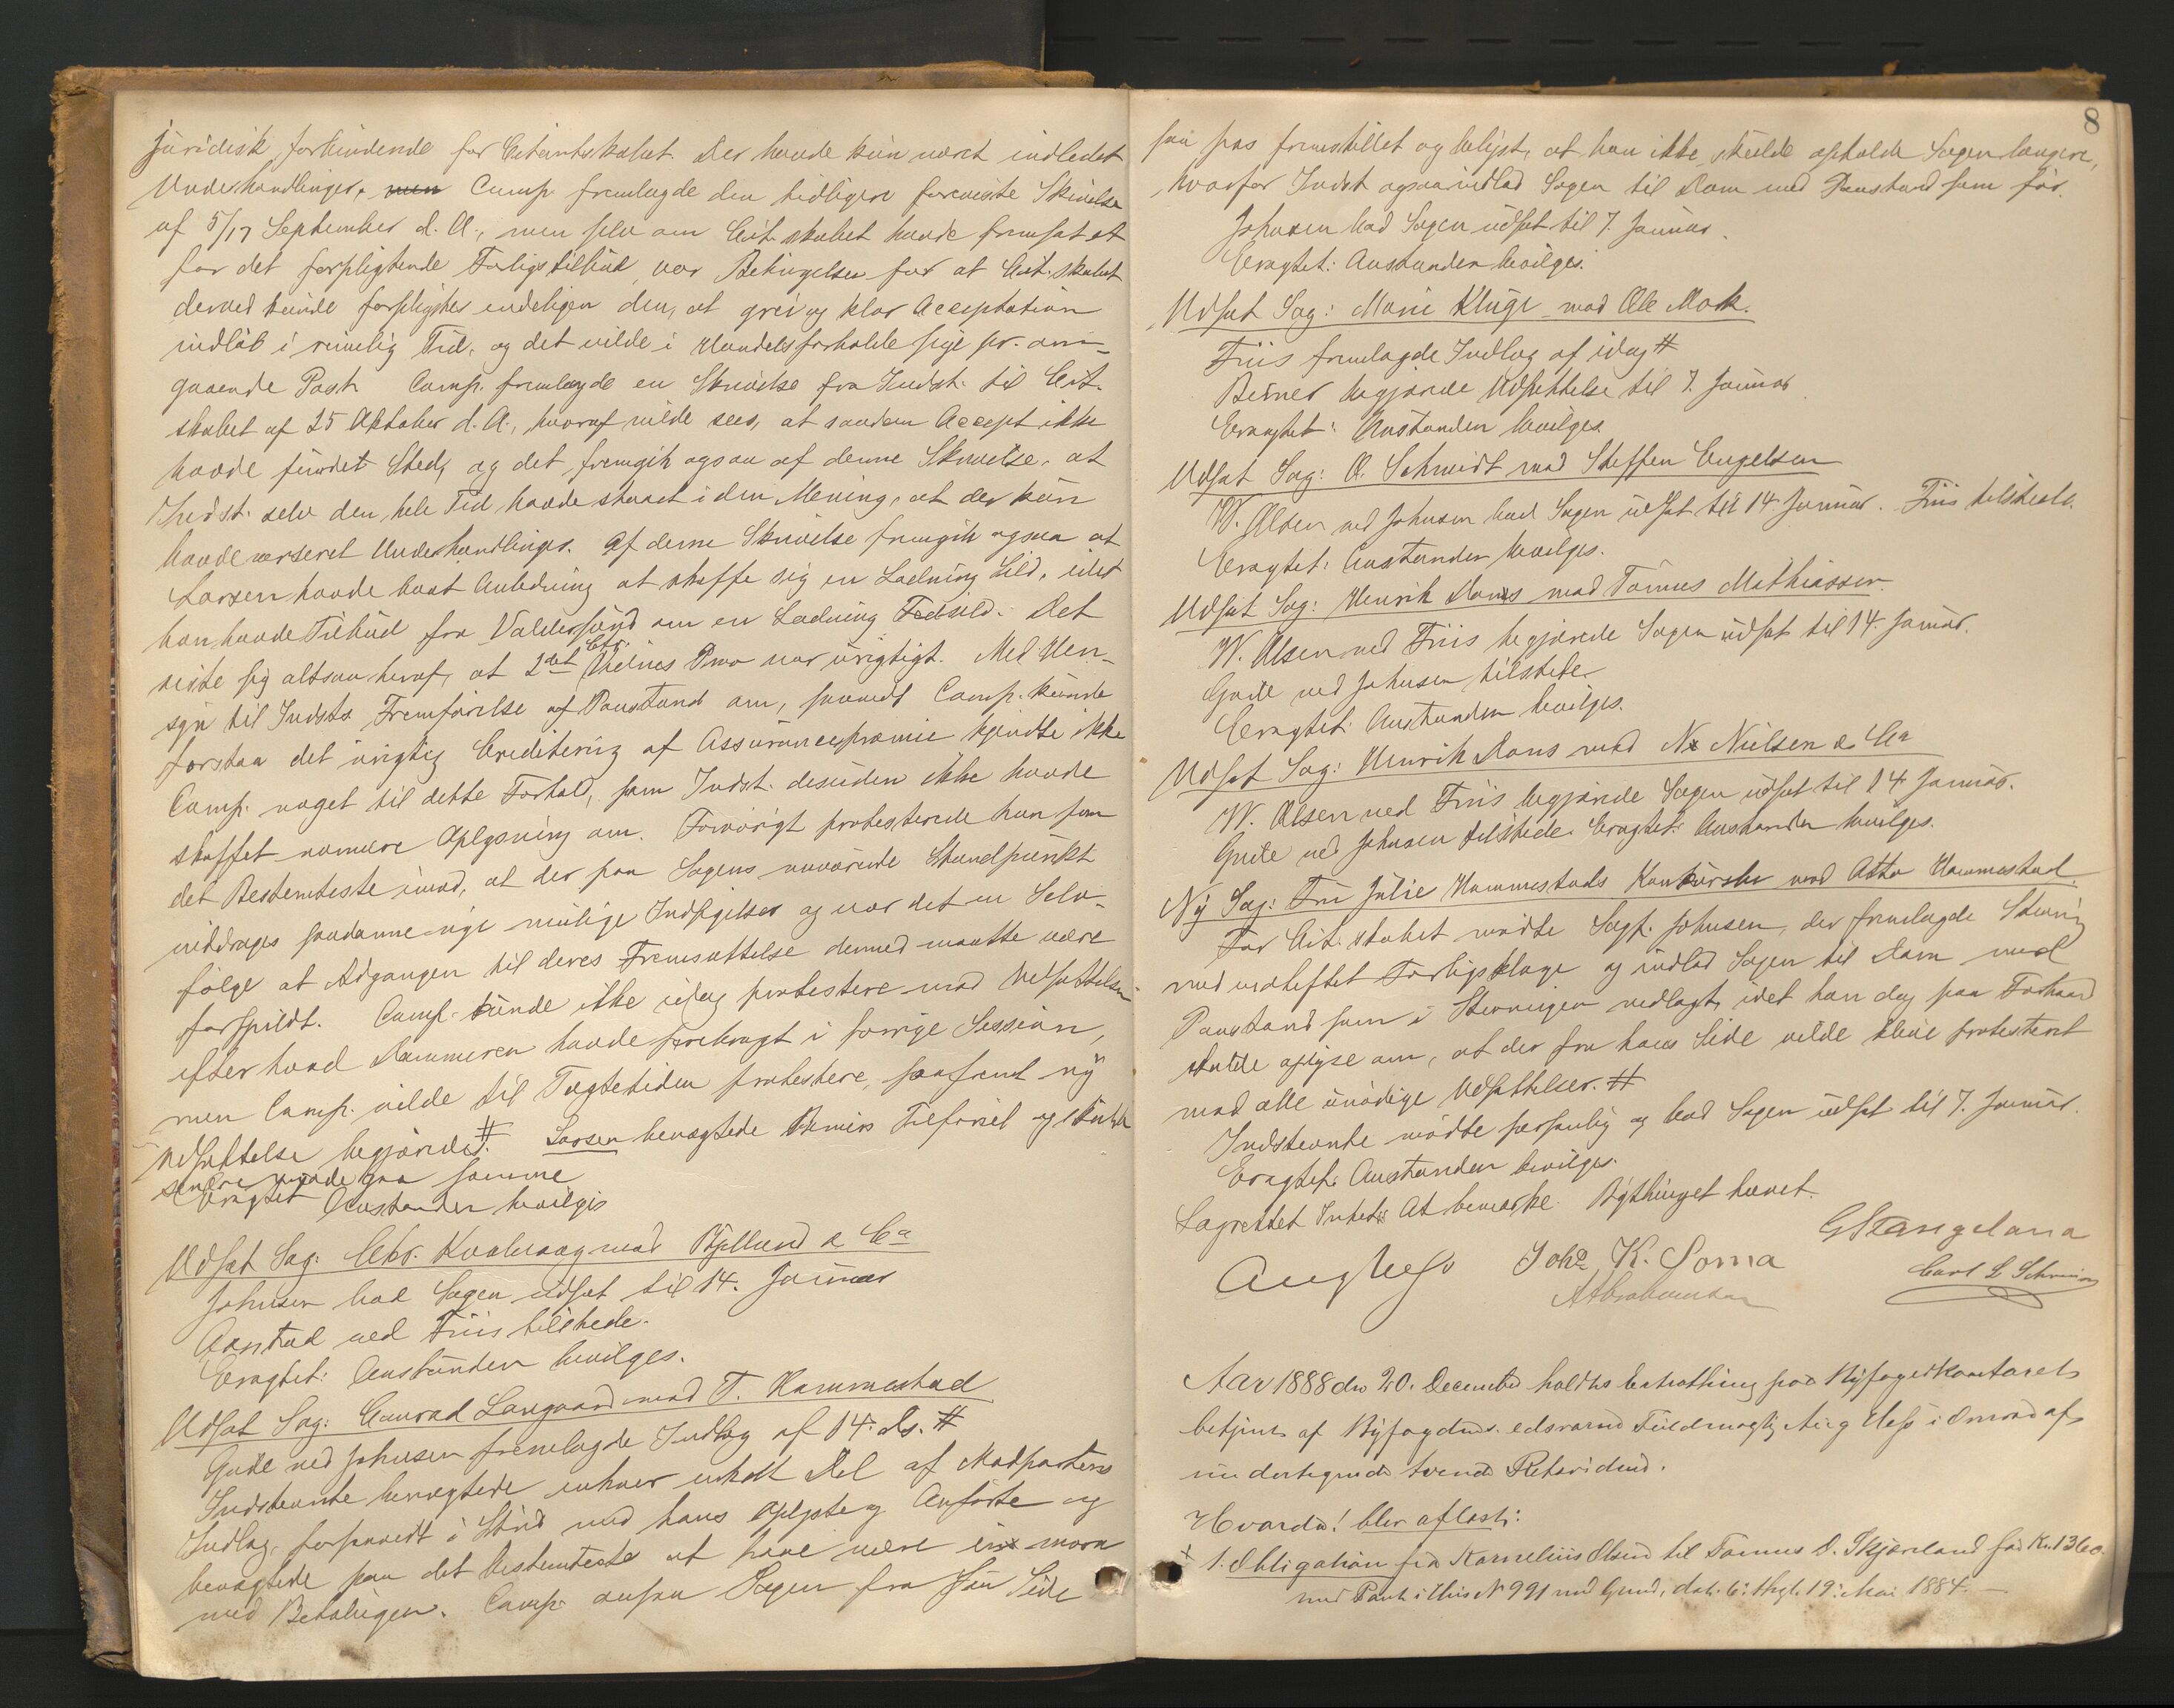 juridisk forbindende for Citantskabet. Der havde kun været indledet
Underhandlinger, men Comp. fremlagde den tidligere foreviste Skrivelse
af 5/17 September d. A., men selv om Cit.skabet havde fremsat et
for det forpligtende Forligstilbud, var Betingelsen for at Cit.skabet
derved kunde forpligtes endeligen den, at grei og klar Acceptation
indløb i rimelig Tid, og det vilde i Handelsforholde sige pr. om-
gaaende Post. Comp. fremlagde en Skrivelse fra Indst. til Cit.
skabet af 25 Oktober d. A., hvoraf vilde sees, at saadan Accept ikke
havde fundet Sted, og det fremgik ogsaa af denne Skrivelse, at
Indst. selv den hele Tid havde staaet i den Mening, at der kun
havde verseret Underhandlinger. Af denne Skrivelse fremgik ogsaa at
Larsen havde havt Anledning at skaffe sig en Ladning Sild, idet
han havde Tilbud fra Valdersund om en Ladning Fedsild. Det
viste sig altsaa heraf, at 2det Ctr. Vidnes Prov var urigtigt. Med Hen-
syn til Indsts Fremførelse af Paastand om, saavidt Comp. kunde
forstaa det urigtig Creditering af Assurancepræmie kjendte ikke
Comp. noget til dette Forhold, som Indst. desuden ikke havde
skaffet nærmere Oplysning om. Forøvrigt protesterede han som
det Bestemteste imod, at der paa Sagens nuværende Standpunkt
inddrages saadanne nye mulige Indsigelser og var det en Selv-
følge at Adgangen til deres Fremsættelse dermed maatte være
forspildt. Comp. kunde ikke idag protestere mod Udsættelsen
efter hvad Dommeren havde forebragt i forrige Session,
men Comp. vilde til Tægtetiden protestere, saafremt ny
Udsættelse begjæredes. # Larsen benægtede Reiners Tilførsel og skulde
senere svare paa samme
Eragtet Anstanden bevilges
Udsat Sag: Chr. Kvalevaag mod Bjelland & Co
Johnsen bad Sagen udsat til 14. Januar
Aanstad ved Friis tilstede.
Eragtet: Anstanden bevilges.
Udsat Sag: Conrad Langaard mod T. Hammestad
Gude ved Johnsen fremlagde Indlæg af 14. ds. #
Indstevnte benægtede enhver enkelt Del af Modpartens
Indlæg, forsaavidt i Strid med hans Oplyste og Anførte og
benægtede paa det Bestemteste at have være in mora
med Betalingen. Comp. ansaa Sagen fra sin Side
8
saa pas fremstillet og belyst, at han ikke skulde opholde Sagen længere,
hvorfor Indst ogsaa indlod Sagen til Dom med Paastand som før.
Johnsen bad Sagen udsat til 7. Januar.
Eragtet: Anstanden bevilges.
Udsat Sag: Marie Kluge mod Ole Mark.
Friis fremlagde Indlæg af idag #
Reiner begjærede Udsættelse til 7. Januar
Eragtet: Anstanden bevilges.
Udsat Sag: A. Schmidt mod Steffen Engelsen
W. Olsen ved Johnsen bad Sagen udsat til 14. Januar. Friis tilstede.
Eragtet: Anstanden bevilges.
Udsat Sag: Henrik Dons mod Tønnes Mathiassen.
W. Olsen ved Friis begjærede Sagen udsat til 14. Januar.
Gude ved Johnsen tilstede.
Eragtet: Anstanden bevilges.
Udsat Sag: Henrik Dons mod N. Nielsen & Co
W. Olsen ved Friis begjærede Sagen udsat til 14. Januar.
Gude ved Johnsen tilstede. Eragtet: Anstanden bevilges.
Ny Sag: Fru Julie Hammestads Konkursbo mod Otto Hammestad
For Cit.skabet mødte Sagf. Johnsen, der fremlagde Stevning
med vedheftet Forligsklage og indlod Sagen til Dom med
Paastand som i Stevningen nedlagt, idet han dog paa Forhaand
skulde oplyse om, at der fra hans Side vilde blive protesteret
mod alle unødige Udsættelser. #
Indstevnte mødte personlig og bad Sagen udsat til 7. Januar.
Eragtet: Anstanden bevilges.
Lagrettet Intet At bemærke. Bythinget hævet.
Aug Hess Johs K. Soma G Stangeland
A Abrahamsen Carl L Schreiner
Aar 1888 den 20. December holdtes extrathing paa Byfogedkontoret
betjent af Byfogdens edsvorne Fuldmægtig Aug Hess i Overvær af
undertegnede tvende Retsvidner.
Hvorda! blev aflæst:
x 1. Obligation fra Kornelius Olsen til Tønnes O. Skjæveland for Kr. 1360.
med Pant i Hus No 991 med Grund, dat. 6. thgl. 19. Mai 1884. —